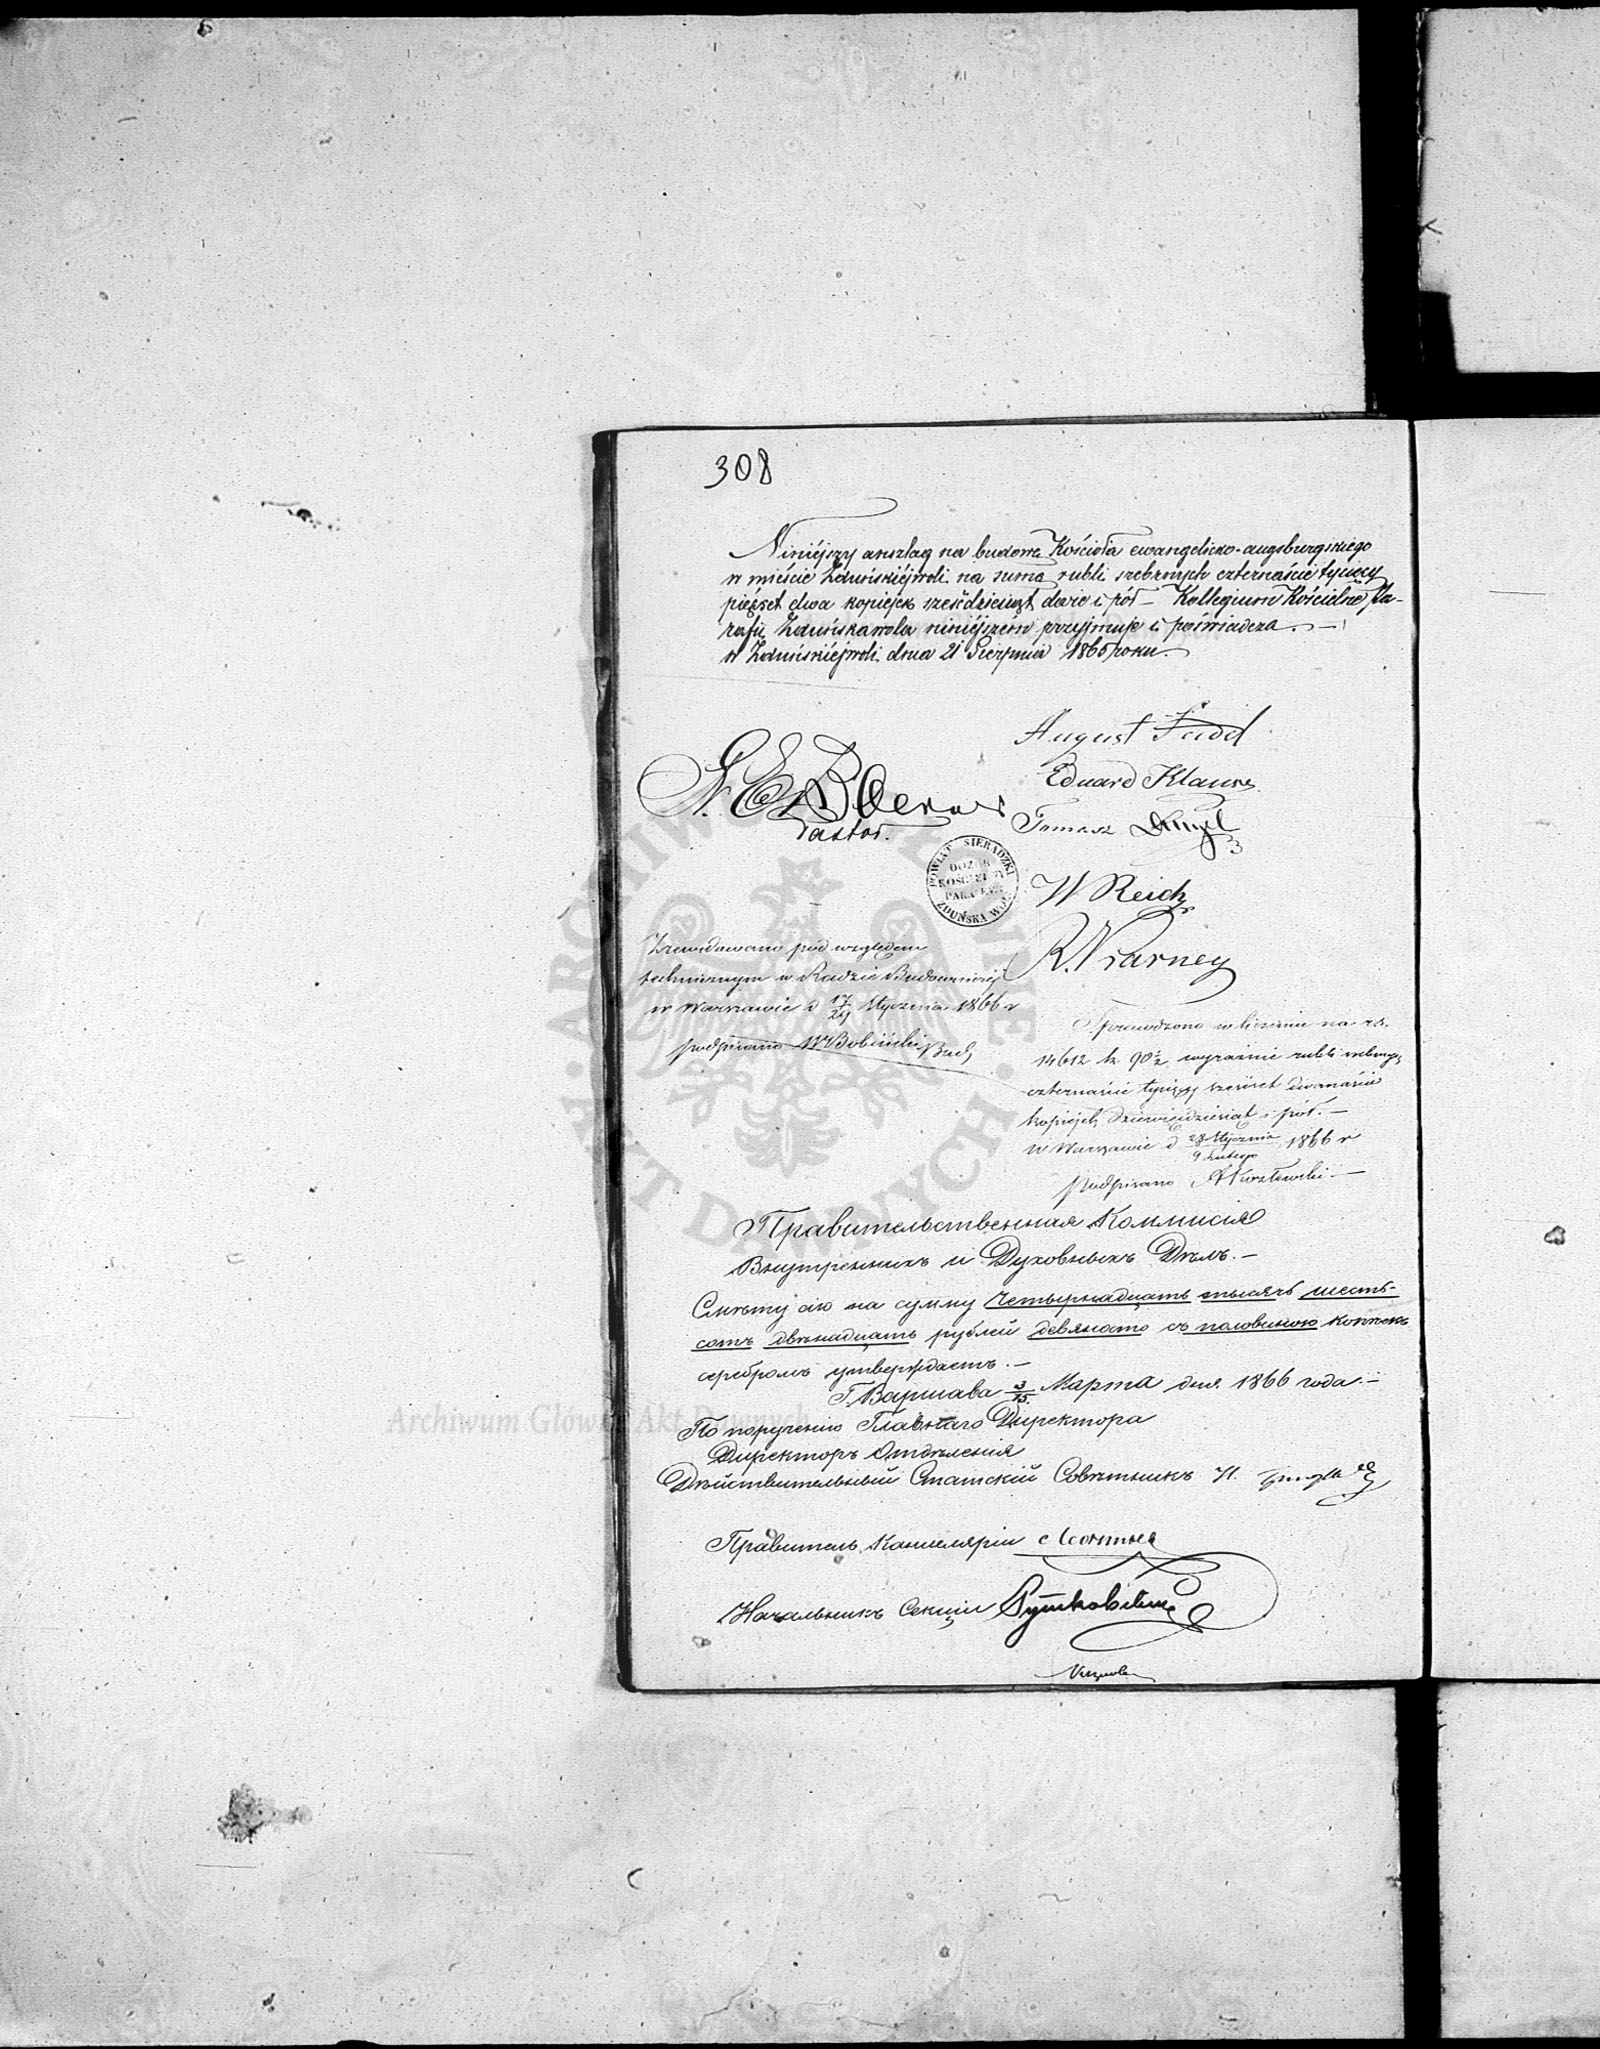 308
Niniéjszy anszlag na budowę Kościoła ewangelicko-augsburgskiego
w mieście Zduńskiéjwoli na sumę rubli srebrnych czternaście tysięcy
pięćset dwa kopiejek sześćdziesiąt dwie i pół — Kollegium Kościelne Pa-
rafii Zduńskawola niniéjszém przyjmuje i poświadcza. —
w Zduńskiéjwoli dnia 21 Sierpnia 1865 roku.
August
Eduard Klause
Pastor.
Tomasz
POWIAT SIERADZKI
DOZÓR
KOŚCIELNY
ZDUŃSKA WOL
W Reich
Zrewidowano pod względem
technicznym w Radzie Budowniczéj
w Warszawie d 17/29 Stycznia 1866 r
podpisano W Bobiński Bud
Sprawdzono w liczeniu na rs.
14612 k. 90½ wyraźnie rubli srebrnych
czternaście tysięcy sześćset dwanaście
kopiejek dziewięćdziesiąt i pół. —
w Warszawie d 28 Stycznia/9 Lutego 1866 r
podpisano
Правительственная Коммисія
Внутреннихъ и Духовныхъ Дѣлъ. —
Смѣту сію на сумму четырнадцать тысячъ шесть-
сотъ двѣнадцать рублей девяносто съ половиною копѣекъ
серебромъ утверждаетъ. —
Г. Варшава 3/15 Марта дня 1866 года. —
По порученію Главнаго Директора
Директоръ Отдѣленія
Дѣйствительный Статскій Совѣтникъ
Правитель Канцеляріи
Начальникъ Секціи
ARCHIWUM GŁÓWNE AKT DAWNYCH
Archiwum Główne Akt Dawnych